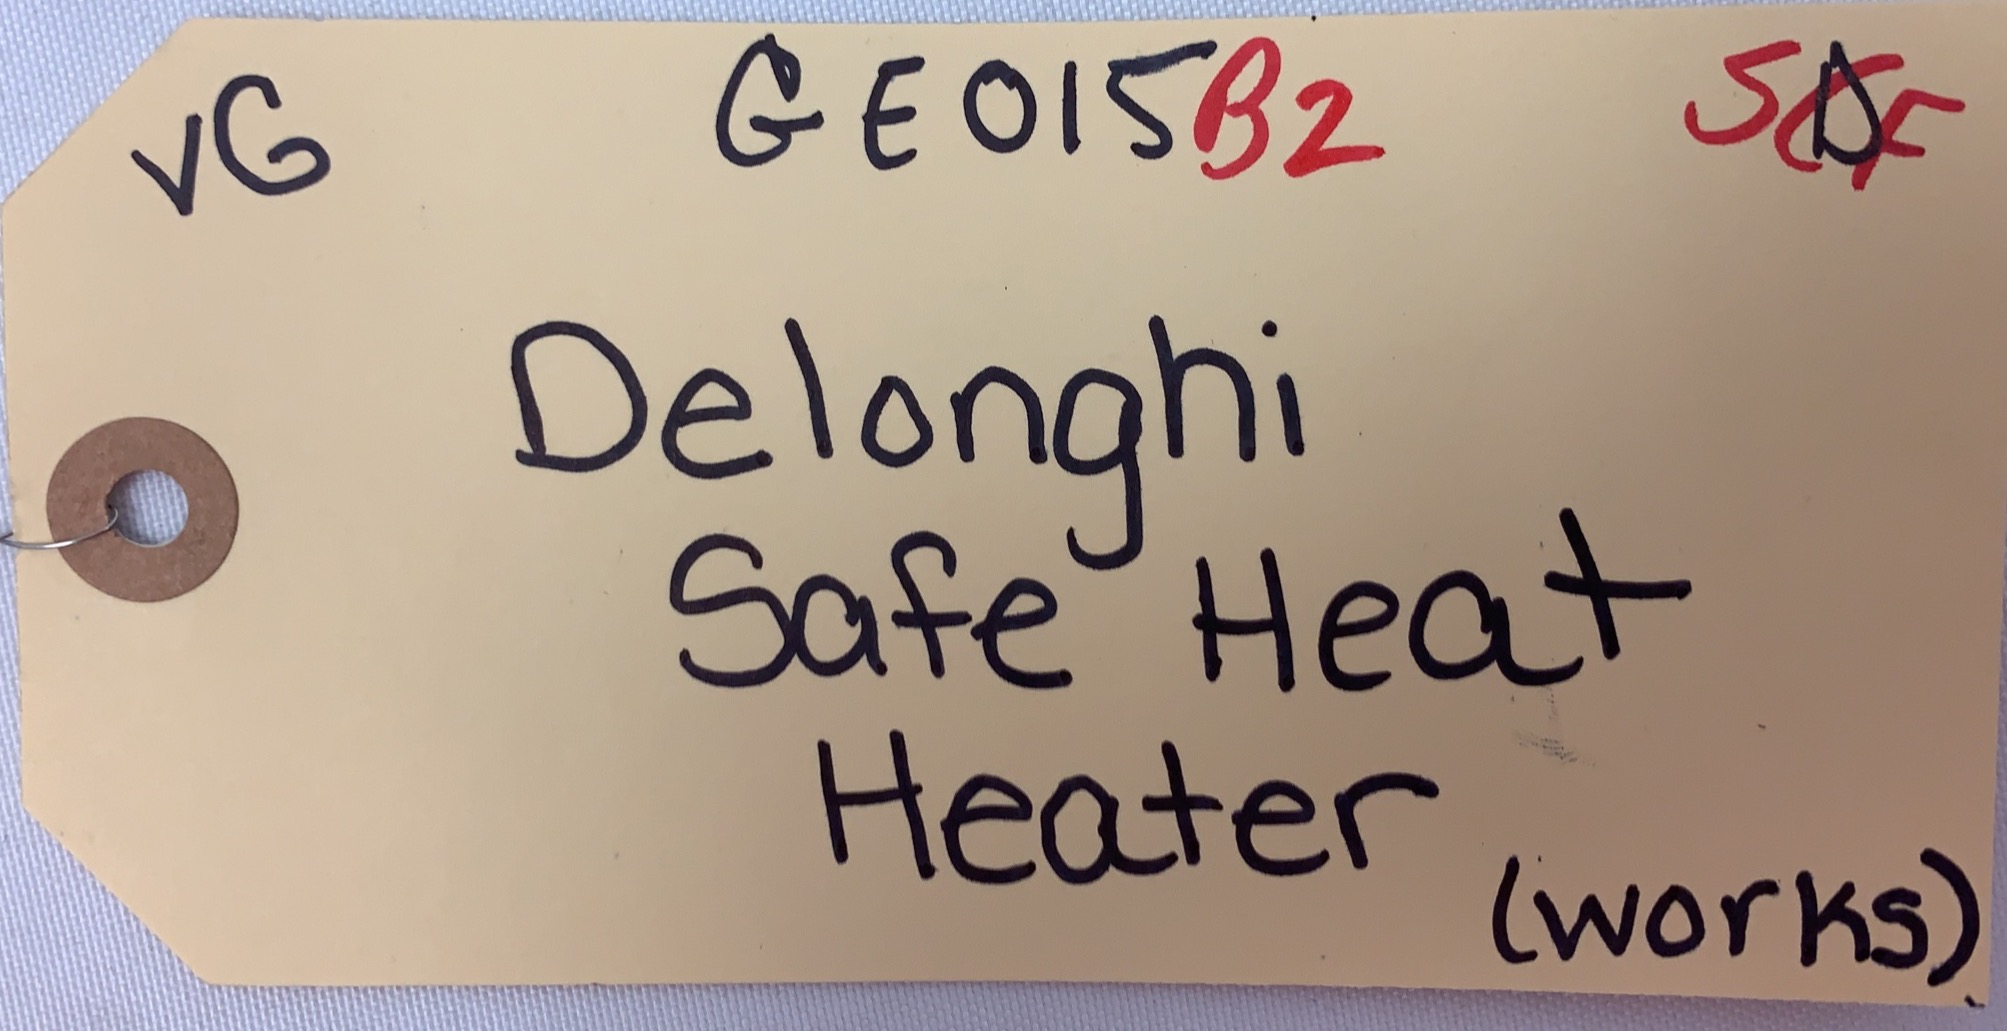 VG GE015B2
Delonghi
Safe Heat
Heater
(works)